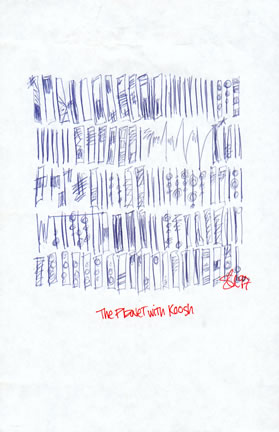 The PLANET with Koosh